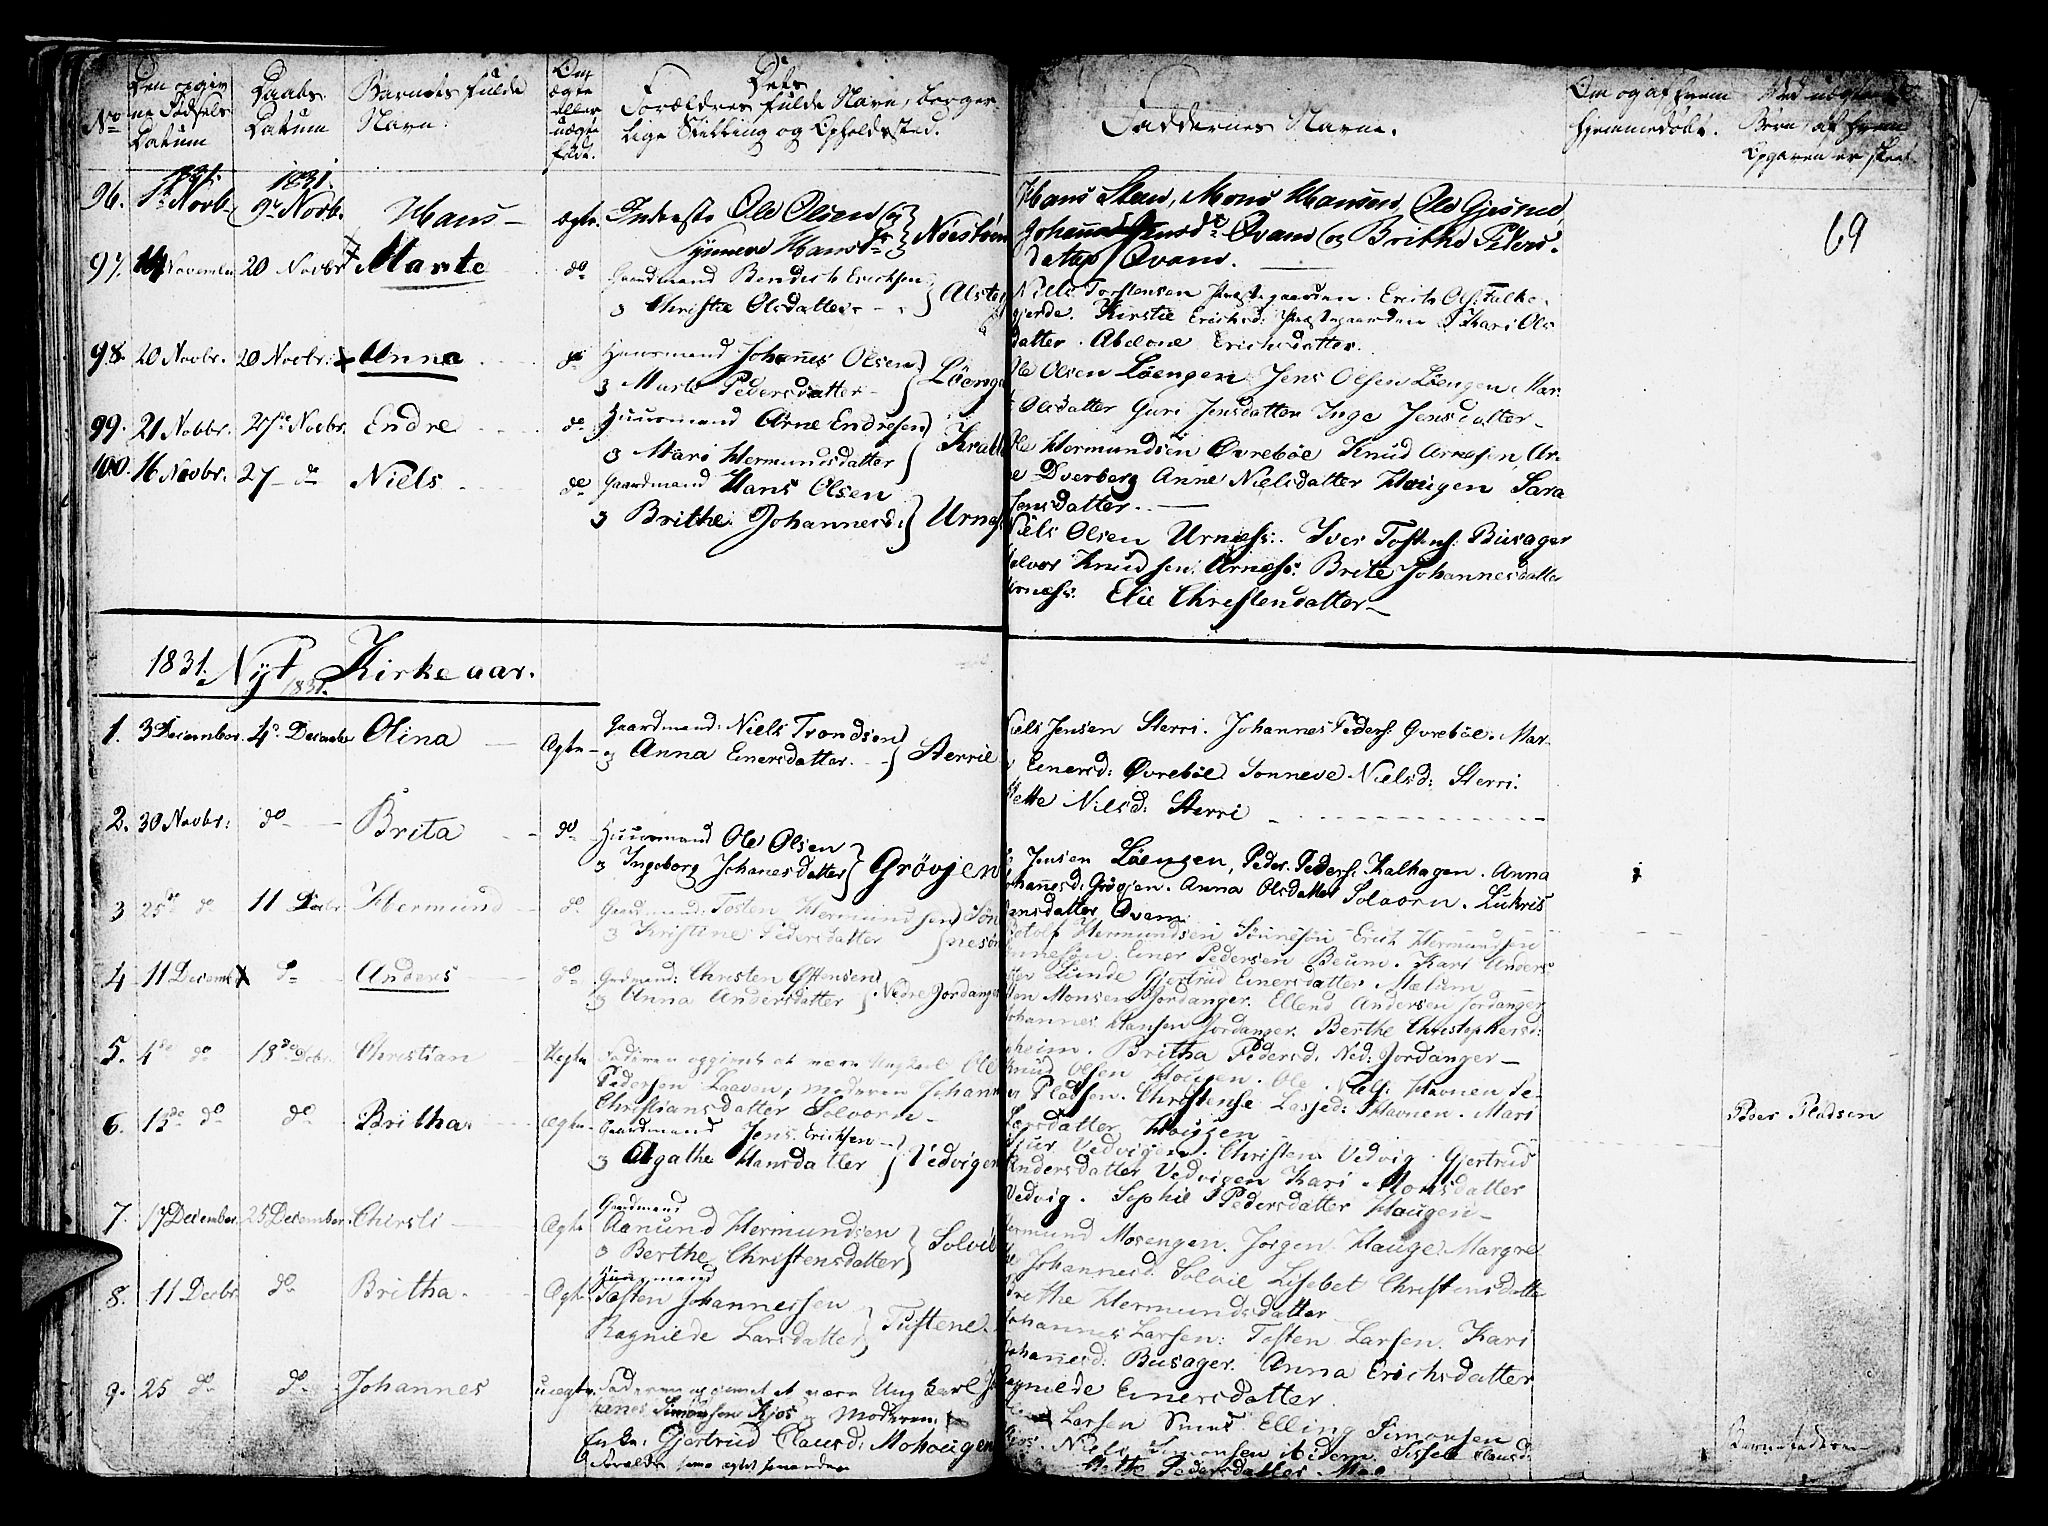 No
Den opgivne Fødsels Datum
Daabs Datum
Barnets fulde Navn.
Om ægte eller uægte født.
Dets Forældres fulde Navn, borgerlige Stilling og Opholdssted.
Faddernes Navne.
Om og af hvem hjemmedøbt.
69
96. 1831. Novb. 1831. 9de Novb. Hans - ægte. Inderste Ole Olsen og
Synneve Hansdr.
Hans Steen, Mons Hansen, Ole Gjesme
Johanna Jensdr Qvam og Brithe Peders-
datter Qvam.
97. 14 November 20 Novbr Marte do Gaardmand Bendict Ericksen
& Christie Olsdatter
Niels Torstensen Præstegaarden. Erich Ols: Falke-
gjerde. Kirstie Erichsd: Præstegaarden & Kari Ols
datter. Abelone Erichsdatter.
98. 20 Novbr. 20 Novbr: Anna do Huusmand Johannes Olsen
& Marte Pedersdatter Löenge
Ole Olsen Löengen Jens Olsen Löengen. Mar-
Olsdatter Guri Jensdatter Inge Jensdatter
99. 21 Novbr. 27de Novbr. Endre do Huusmand Arne Endresen
& Mari Hermundsdatter
Ole Hermundsen Øvrebøe Knud Arnesen, Ar-
ne Dverberg Anne Nielsdatter Hougen Sara
Jensdatter.
100. 16 Novbr. 27 do Niels do Gaardmand Hans Olsen
& Brithe Johannesd: Urnæs
Niels Olsen Urnæss: Iver Tostens: Busager
Knudsen: Arnæss: Brite Johannesdatter
Urnæss: Elie Christensdatter
1831. Nyt Kirkeaar.
1831.
1. 3 December 4de December Olina Ægte Gaardmand: Niels Trondsen
& Anna Einersdatter. Sterrie
Niels Jensen Sterri. Johannes Peders: Øvrebøe. Mar-
Einersd: Øvrebøe Sonneve Nielsd: Sterri.
Mette Nielsd: Sterri
2. 30 Novbr: do Brita do Huusmand Ole Olsen
& Ingeborg Johanesdatter Grövjen
Jensen Löengen, Peder Peders: Kalhagen. Anna
Johannesd: Grövjen. Anna Olsdatter Solvorn. Lukris
Jensdatter Qvam
3 25de do 11 Decbr Hermund do Gaardmand: Tosten Hermundsen
& Kristine Pedersdatter
Botolf Hermundsen Sönnesön Erich Hermundsen
Sönnesön Einer Pedersen Beum. Kari Anders
datter Lunde Gjertrud Einersdatter Mælum
4 11 Decemb do Anders do Grdmand: Christen Offensen
& Anna Andersdatter Nedre Jordanger
Monsen Jordanger. Ellend Andersen Jordanger
Johannes Hansen Jordanger. Berthe Christophersd:
Britha Pedersd: Ned: Jordanger
5. 4de do 18de Decbr. Christian Uægte Faderen opgivet at være Ungkarl Ole
Pedersen Laaven, Moderen Johanne
Christiansdatter Solvorn
Knud Olsen Hougen. Ole Havnen Pe-
er Pladsen. Christense Lassed: Havnen. Mari
Larsdatter Hougen
Peer Pladsen
6. 13de do do Britha. ægte Gaardmand Jens Ericksen
& Agathe Hansdatter Vedvigen
Vedvigen. Christen Vedvig. Gjertrud
Andersdatter Vedvigen Kari Monsdatter
Vedvig. Sophie Pedersdatter Haugen
7. 17 December 25 December Chirsti Ægte Gaardmand
Aanund Hermundsen
& Berthe Christensdatter Solvie
Hermund Mosengen. Jörgen Hauge Margre
Johannesd: Solvie Lisebet Christensdatter
Brithe Hermundsdatter
8. 11 Decbr do Britha. Ægte Huusmand
Tosten Johannessen
Ragnilde Larsdatter Tuftene.
Johannes Larsen: Tosten Larsen Kari
Johannesd: Busager. Anna Erichsdatter
Ragnilde Einersdatter
9. 25 do do Johannes uægte Faderen opgivet at være Ungkarl Jo-
hannes Simonsen Kjos & Moderen
Enke: Gjertrud Clausd: Mohougen
Larsen Elling Simonsen
Niels Simonsen ibidem Sissele Clausd:
Mette Pedersdatter Moe
Barnefaderen